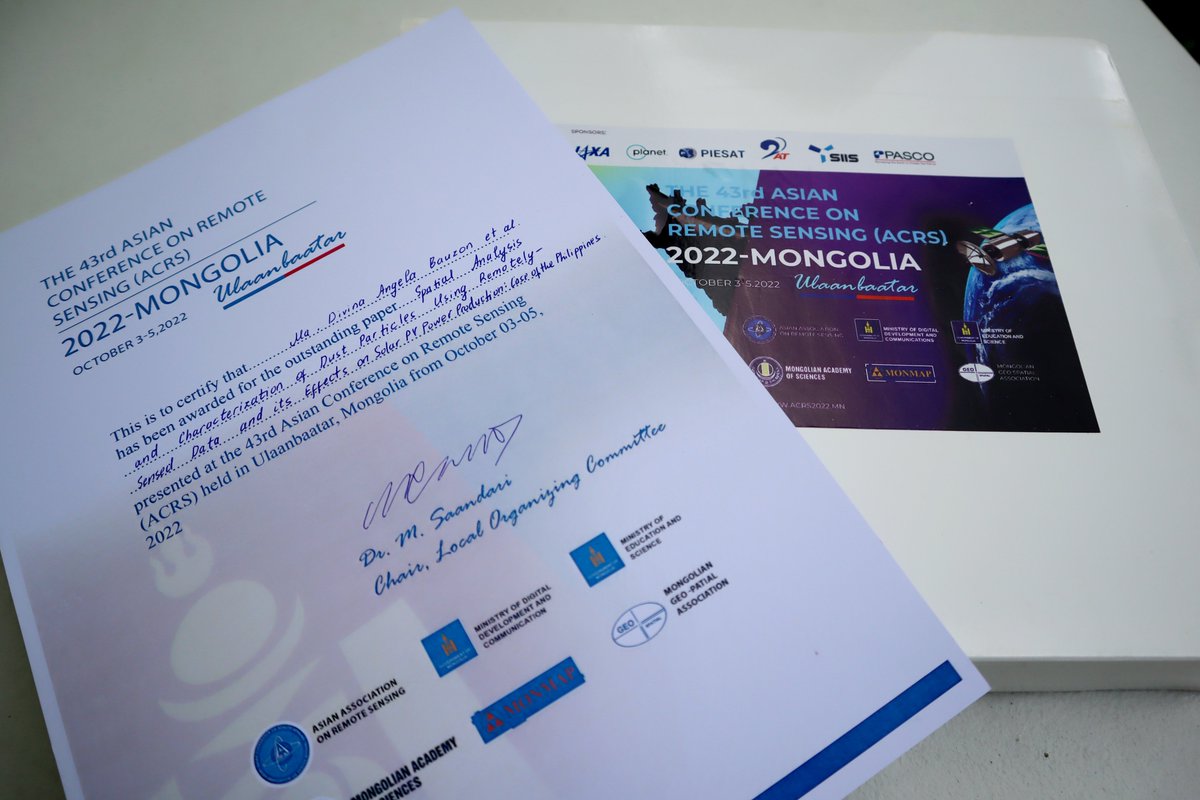 THE 43rd ASIAN
CONFERENCE ON REMOTE
SENSING (ACRS)
2022-MONGOLIA
OCTOBER 3-5,2022
Ulaanbaatar
This is to certify that Ma. Divina Angela Bauzon et al.
has been awarded for the outstanding paper Spatial Analysis
and Characterization of Dust Particles Using Remotely-
Sensed Data and its Effects on Solar PV Power Production: Case of the Philippines
presented at the 43rd Asian Conference on Remote Sensing
(ACRS) held in Ulaanbaatar, Mongolia from October 03-05,
2022
Dr. M. Saandari
Chair, Local Organizing Committee
MINISTRY OF
EDUCATION AND
SCIENCE
MINISTRY OF DIGITAL
DEVELOPMENT AND
COMMUNICATION
GEO
SPATIAL
MONGOLIAN
GEO-SPATIAL
ASSOCIATION
ASIAN ASSOCIATION
ON REMOTE SENSING
MONMAP
MONGOLIAN ACADEMY
SCIENCES
SPONSORS:
planet.
PIESAT
AT
SIIS
PASCO
THE 43rd ASIAN
CONFERENCE ON
REMOTE SENSING (ACRS)
2022-MONGOLIA
OCTOBER 3-5.2022
Ulaanbaatar
ASIAN ASSOCIATION
ON REMOTE SENSING
MINISTRY OF DIGITAL
DEVELOPMENT AND
COMMUNICATIONS
MINISTRY OF
EDUCATION AND
SCIENCE
MONGOLIAN ACADEMY
OF SCIENCES
MONMAP
GEO
MONGOLIAN
GEO SPATIAL
ASSOCIATION
.ACRS2022.MN